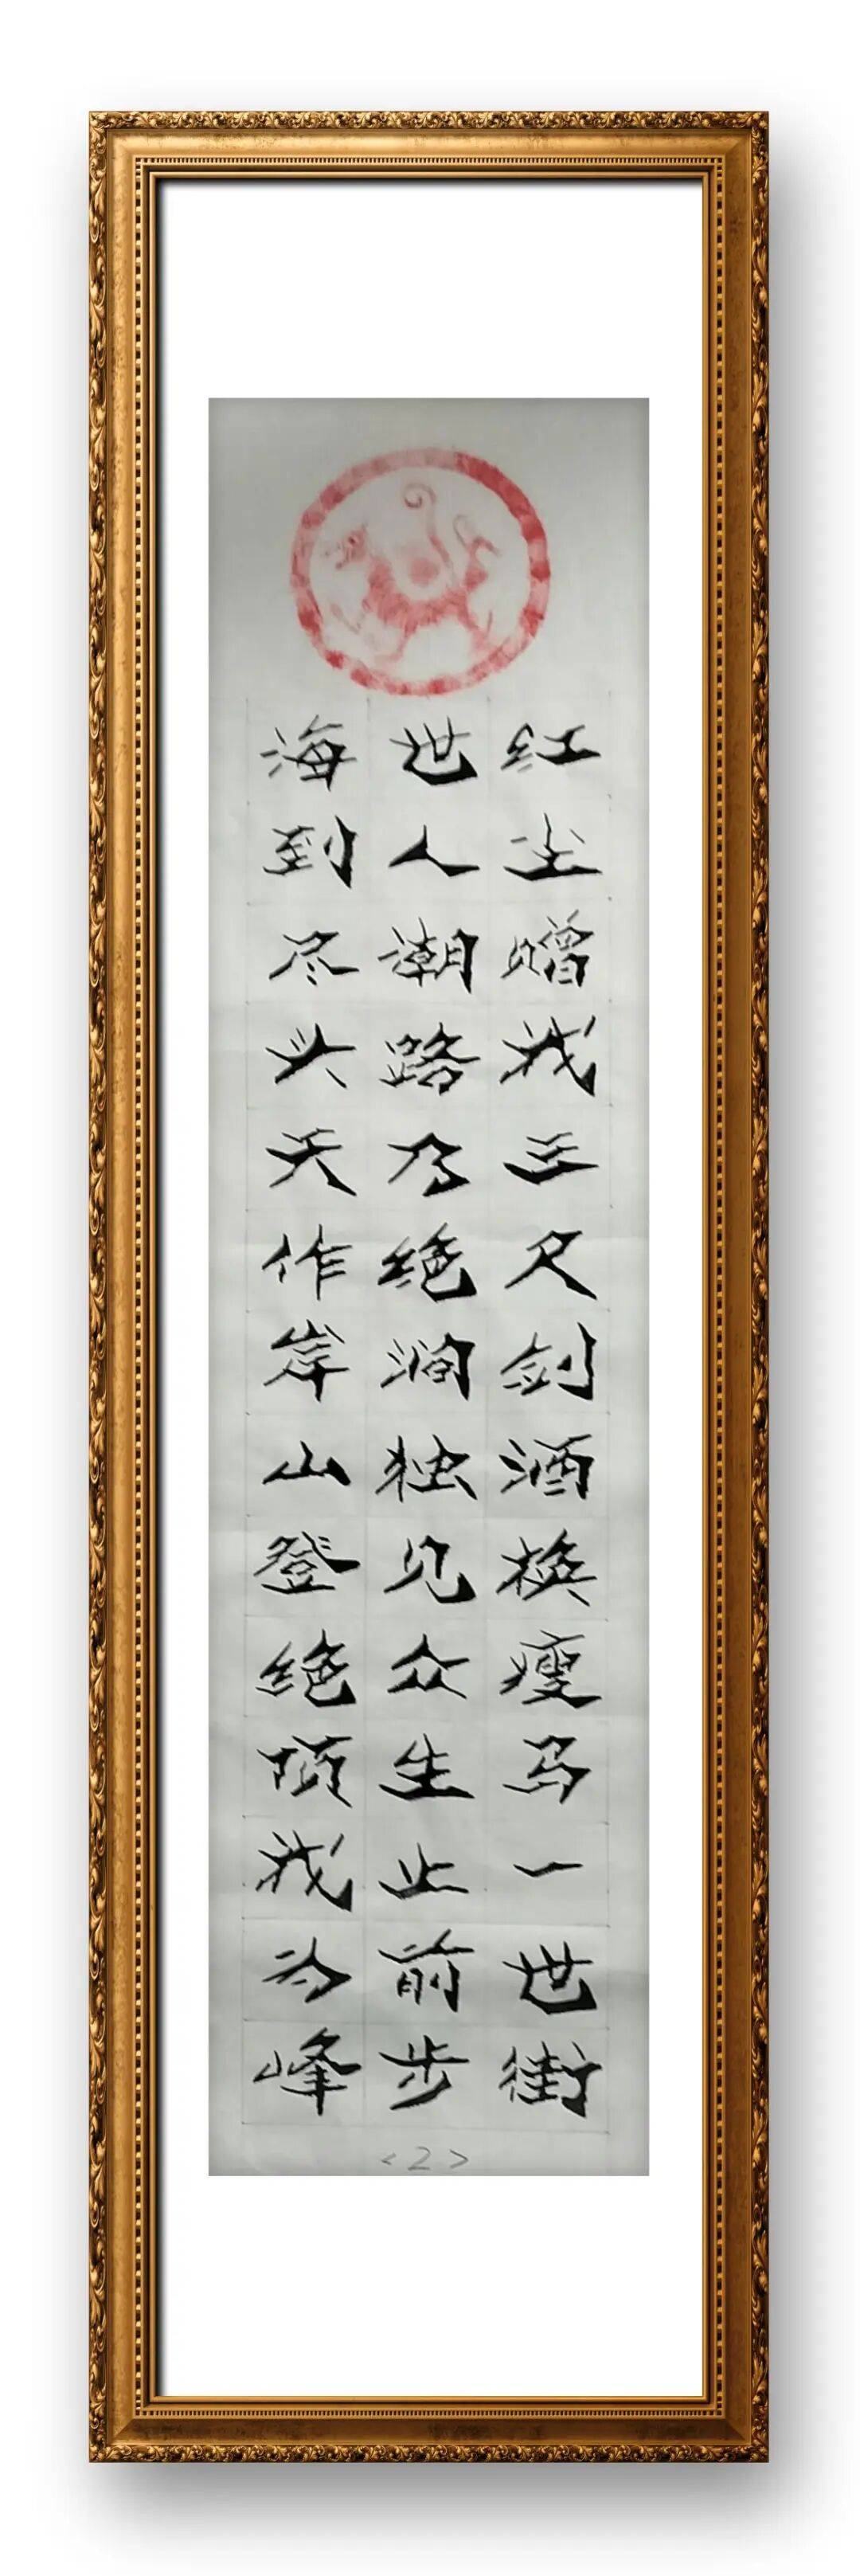 红尘赠我三尺剑酒换瘦马一世街
世人潮路乃绝涧独见众生止前步
海到尽头天作岸山登绝顶我为峰
<2>